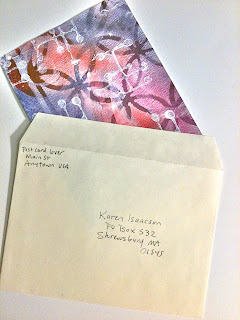 Postcard lover
Main St
Anytown USA
Karen Isaacson
PO Box 532
Shrewsbury MA
01545